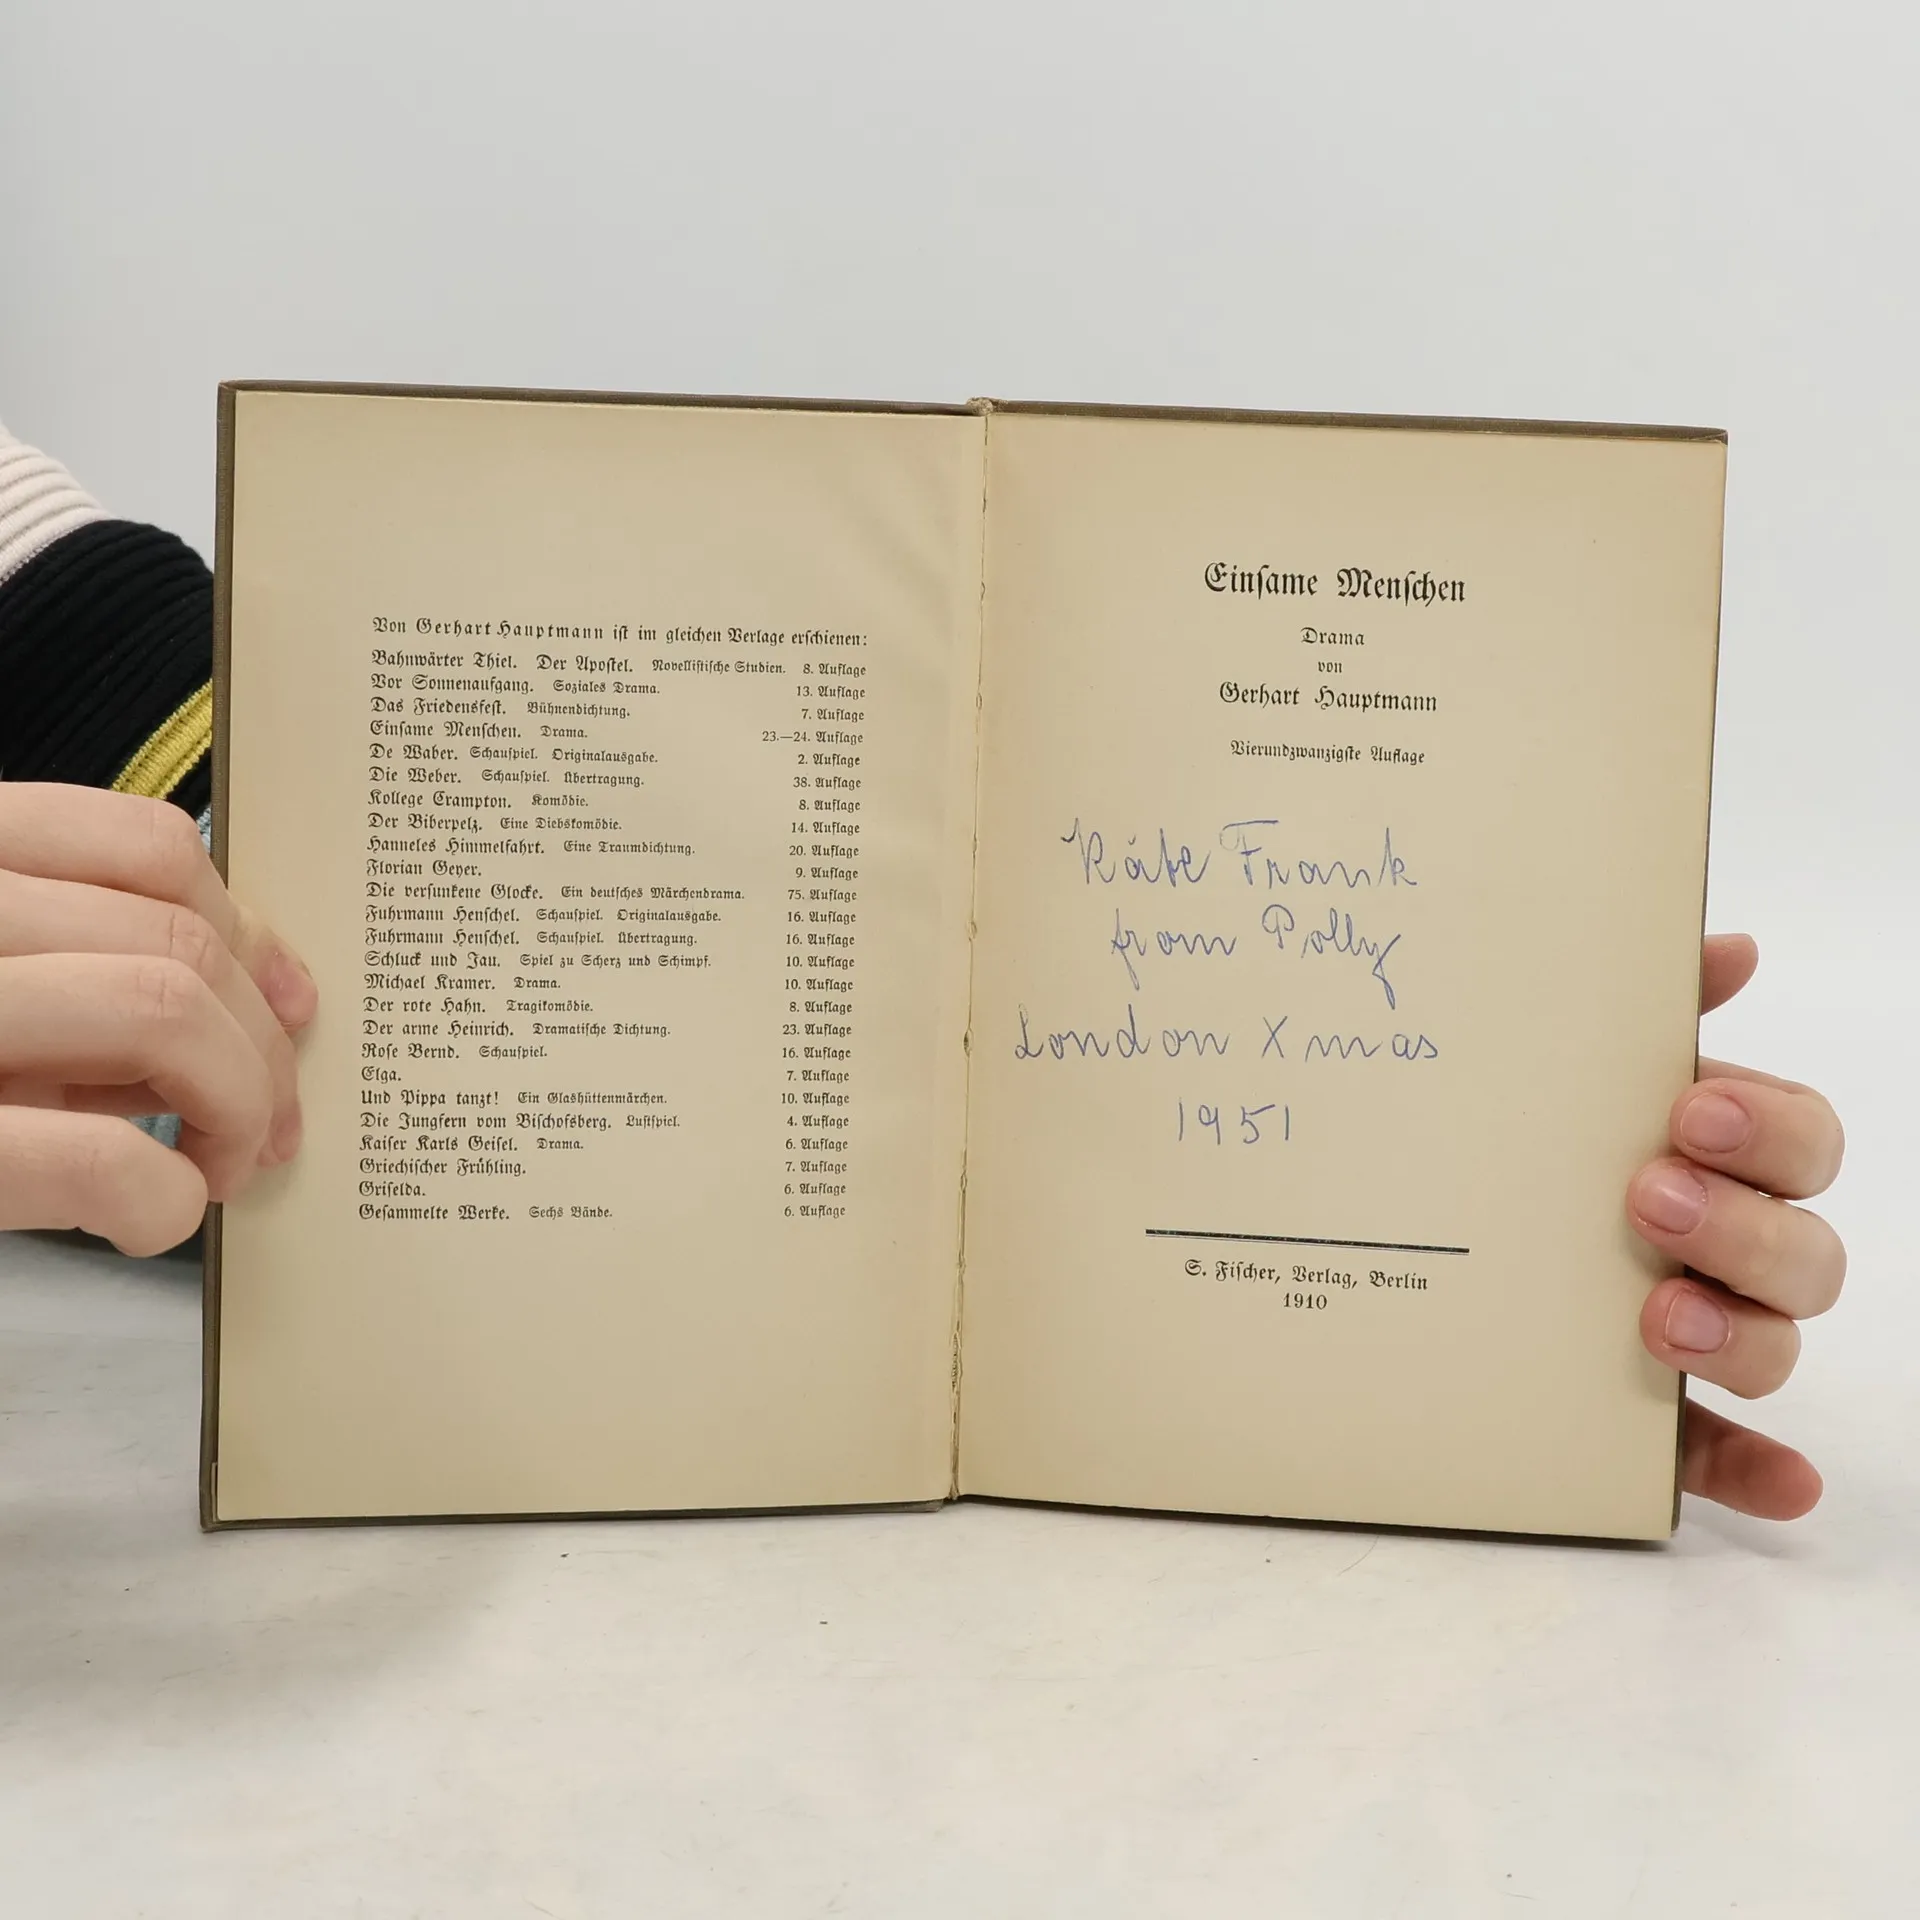 Von Gerhart Hauptmann ist im gleichen Verlage erschienen:
Bahnwärter Thiel. Der Apostel. Novellistische Studien. 8. Auflage
Vor Sonnenaufgang. Soziales Drama. 13. Auflage
Das Friedensfest. Bühnendichtung. 7. Auflage
Einsame Menschen. Drama. 23.—24. Auflage
De Waber. Schauspiel. Originalausgabe. 2. Auflage
Die Weber. Schauspiel. Übertragung. 38. Auflage
Kollege Crampton. Komödie. 8. Auflage
Der Biberpelz. Eine Diebskomödie. 14. Auflage
Hanneles Himmelfahrt. Eine Traumdichtung. 20. Auflage
Florian Geyer. 9. Auflage
Die versunkene Glocke. Ein deutsches Märchendrama. 75. Auflage
Fuhrmann Henschel. Schauspiel. Originalausgabe. 16. Auflage
Fuhrmann Henschel. Schauspiel. Übertragung. 16. Auflage
Schluck und Jau. Spiel zu Scherz und Schimpf. 10. Auflage
Michael Kramer. Drama. 10. Auflage
Der rote Hahn. Tragikomödie. 8. Auflage
Der arme Heinrich. Dramatische Dichtung. 23. Auflage
Rose Bernd. Schauspiel. 16. Auflage
Elga. 7. Auflage
Und Pippa tanzt! Ein Glashüttenmärchen. 10. Auflage
Die Jungfern vom Bischofsberg. Lustspiel. 4. Auflage
Kaiser Karls Geisel. Drama. 6. Auflage
Griechischer Frühling. 7. Auflage
Griselda. 6. Auflage
Gesammelte Werke. Sechs Bände. 6. Auflage
Einsame Menschen
Drama
von
Gerhart Hauptmann
Vierundzwanzigste Auflage
Käte Frank
from Polly
London Xmas
1951
S. Fischer, Verlag, Berlin
1910